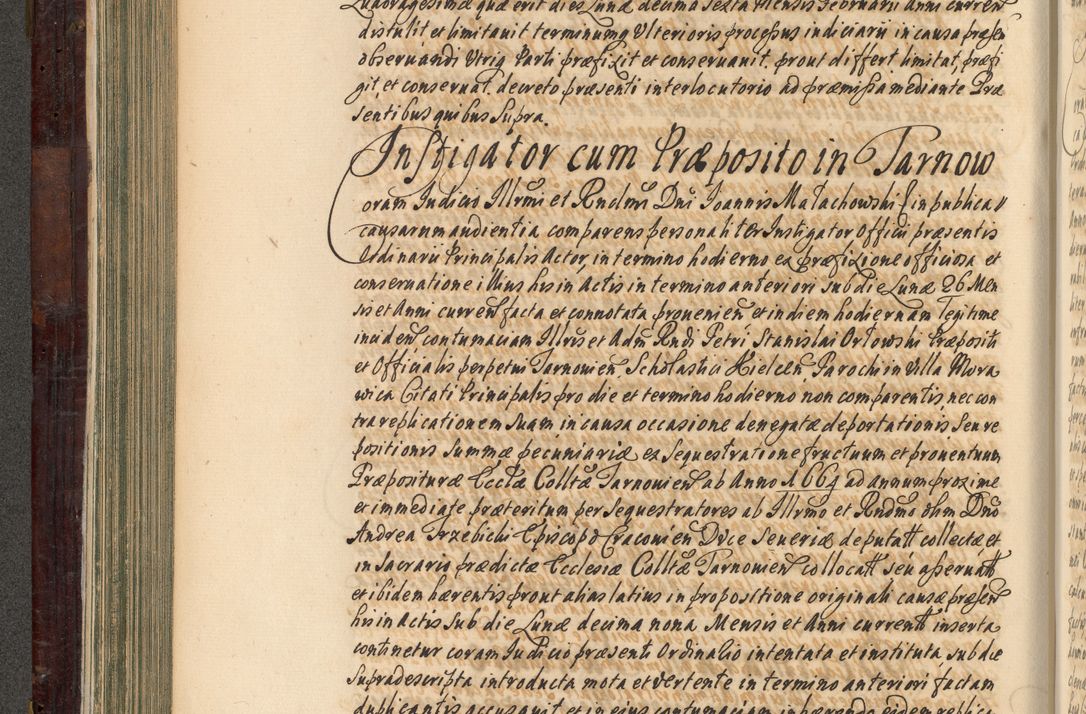 Quadragesimæ quæ erit dies Lunæ decima sexta Mensis Februarii anni curren
distulit et limitavit terminumq Ulterioris processus iudiciarii in causa præsen
observandi Utriq Parti præfixit et conservavit, prout differt limitat, præfi
git et conservat, decreto præsenti interlocutorio ad præmissa mediante Præ
sentibus quibus Supra.
Instigator cum Præposito in Tarnow
Coram Judicio Illrmi et Rndmi Dni Joannis Małachowski E in publica
causarum audientia comparens personaliter Instigator Officii præsentis
Ordinarii Principalis Actor, in termino hodierno ex præfixione officiosa et
conservatione illius hisin Actis in termino anteriori sub die Lunæ 26 Men
sis et Anni curren facta et connotata provenien et in diem hodiernam Legitime
inciden contumaciam Illris et Adm Rndi Petri Stanislai Orłowski Præpositi
et Officialis perpetui Tarnovien Scholastici Kielcen, Parochi in Villa Mora
wica Citati Principalis pro die et termino hodierno non comparentis, nec con
tra replicationem Suam in causa occasione denegatæ deportationis, Seu re
positionis Summæ pecuniariæ ex Sequestratione fructuum et proventuum
Præposituræ Ecctæ Colltæ Tarnovien ab Anno 1664 ad annum proxime
et immediate præteritum per Sequestratores ab Illrmo et Rndmo olim Dno
Andrea Trzebicki Episcopo Cracovien Duce Severiæ deputatt collectæ et
in Sacrario prædictæ Ecclesiæ Colltæ Tarnovien collocatt seu asservatt
et ibidem hærentis prout alias latius in propositione originali causæ præsen
his in Actis Sub die Lunæ decima nona Mensis et Anni currentt inserta
continetur coram Judicio præsenti Ordinario intentata et instituta sub die
Supradescripta introducta mota et Vertente in termino anteriori factam
duplicantis accusavit et in eius contumaciam inhærendo eidem replici